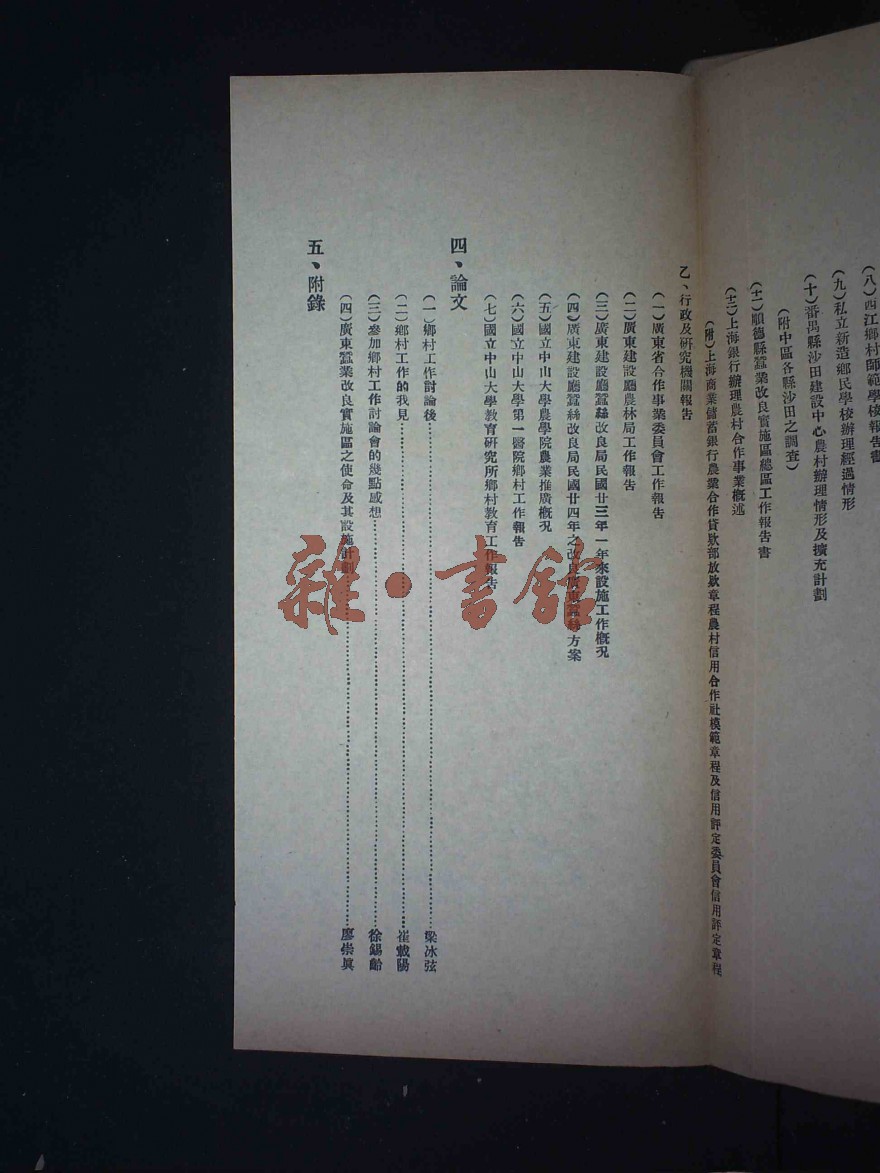 (八)西江鄉村師範學校報告書
(九)私立新造鄉民學校辦理經過情形
(十)番禺縣沙田建設中心農村辦理情形及擴充計劃
(附中區各縣沙田之調查)
(十一)順德縣蠶業改良實施區總區工作報告書
(十二)上海銀行辦理農村合作事業概述
(附)上海商業儲蓄銀行農業合作貸款部放款章程農村信用合作社模範章程及信用評定委員會信用評定章程
乙、行政及研究機關報告
(一)廣東省合作事業委員會工作報告
(二)廣東建設廳農林局工作報告
(三)廣東建設廳蠶絲改良局民國廿三年一年來設施工作概况
(四)廣東建設廳蠶絲改良局民國廿四年之改良廣東蠶絲方案
(五)國立中山大學農學院農業推廣概况
(六)國立中山大學第一醫院鄉村工作報告
(七)國立中山大學教育研究所鄉村教育工作報告
四、論文
(一)鄉村工作討論後……梁冰弦
(二)鄉村工作的我見……崔載陽
(三)參加鄉村工作討論會的幾點感想……徐錫齡
(四)廣東蠶業改良實施區之使命及其設施計劃……廖崇眞
五、附錄
雜·書館